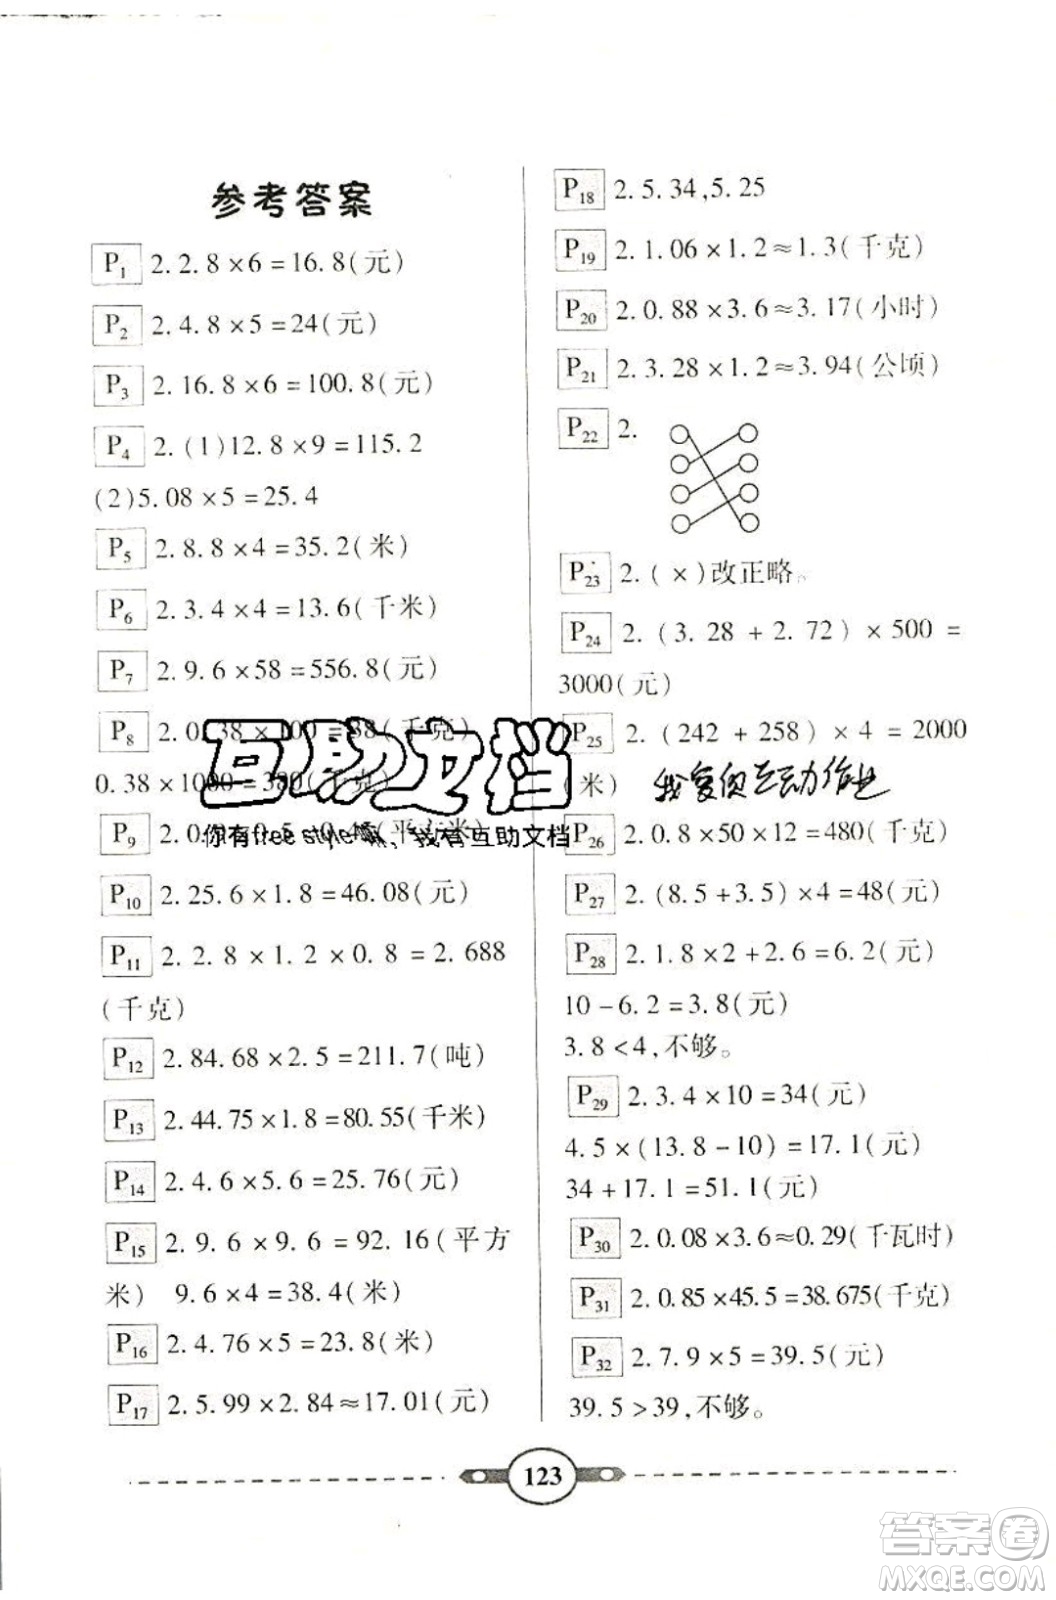 参考答案
P1 2. 2.8×6=16.8(元)
P2 2. 4.8×5=24(元)
P3 2. 16.8×6=100.8(元)
P4 2. (1)12.8×9=115.2
(2)5.08×5=25.4
P5 2. 8.8×4=35.2(米)
P6 2. 3.4×4=13.6(千米)
P7 2. 9.6×58=556.8(元)
P8 2. 0.38×100=38(千克)
0.38×1000=380(千克)
P9 2. 0.9 0.5 0.45(平方米)
P10 2. 25.6×1.8=46.08(元)
P11 2. 2.8×1.2×0.8=2.688
(千克)
P12 2. 84.68×2.5=211.7(吨)
P13 2. 44.75×1.8=80.55(千米)
P14 2. 4.6×5.6=25.76(元)
P15 2. 9.6×9.6=92.16(平方
米) 9.6×4=38.4(米)
P16 2. 4.76×5=23.8(米)
P17 2. 5.99×2.84≈17.01(元)
P18 2. 5.34,5.25
P19 2. 1.06×1.2≈1.3(千克)
P20 2. 0.88×3.6≈3.17(小时)
P21 2. 3.28×1.2≈3.94(公顷)
P22 2.
P23 2. (×)改正略。
P24 2. (3.28+2.72)×500=
3000(元)
P25 2. (242+258)×4=2000
米)
P26 2. 0.8×50×12=480(千克)
P27 2. (8.5+3.5)×4=48(元)
P28 2. 1.8×2+2.6=6.2(元)
10-6.2=3.8(元)
3.8<4,不够。
P29 2. 3.4×10=34(元)
4.5×(13.8-10)=17.1(元)
34+17.1=51.1(元)
P30 2. 0.08×3.6≈0.29(千瓦时)
P31 2. 0.85×45.5=38.675(千克)
P32 2. 7.9×5=39.5(元)
39.5>39,不够。
互助文档
你有free style嘛、我有互助文档
123
答案卷
MXQE.COM